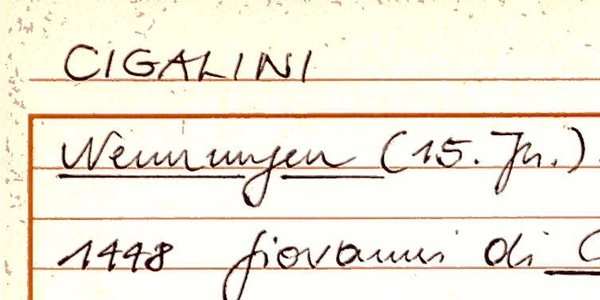 CIGALINI
Nennungen (15. Jh.)
1448 Giovanni di C